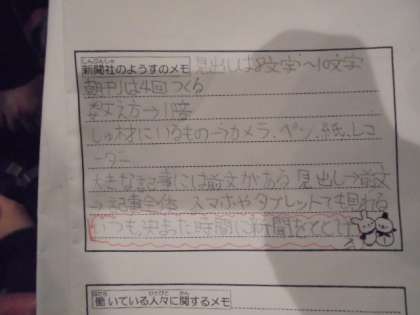 しんぶんしゃ
新聞社のようすのメモ 見出しは8文字〜10文字
朝刊は4回つくる
数え方→1階
しゅ材にいるもの→カメラ、ペン、紙、レコ
ーダー
大きな記事には前文がある 見出し→前文
→記事全体 スマホやタブレットでも見れる
いつも決まった時間に新聞をとどけ
はたら ひとびと かん
働いている人々に関するメモ